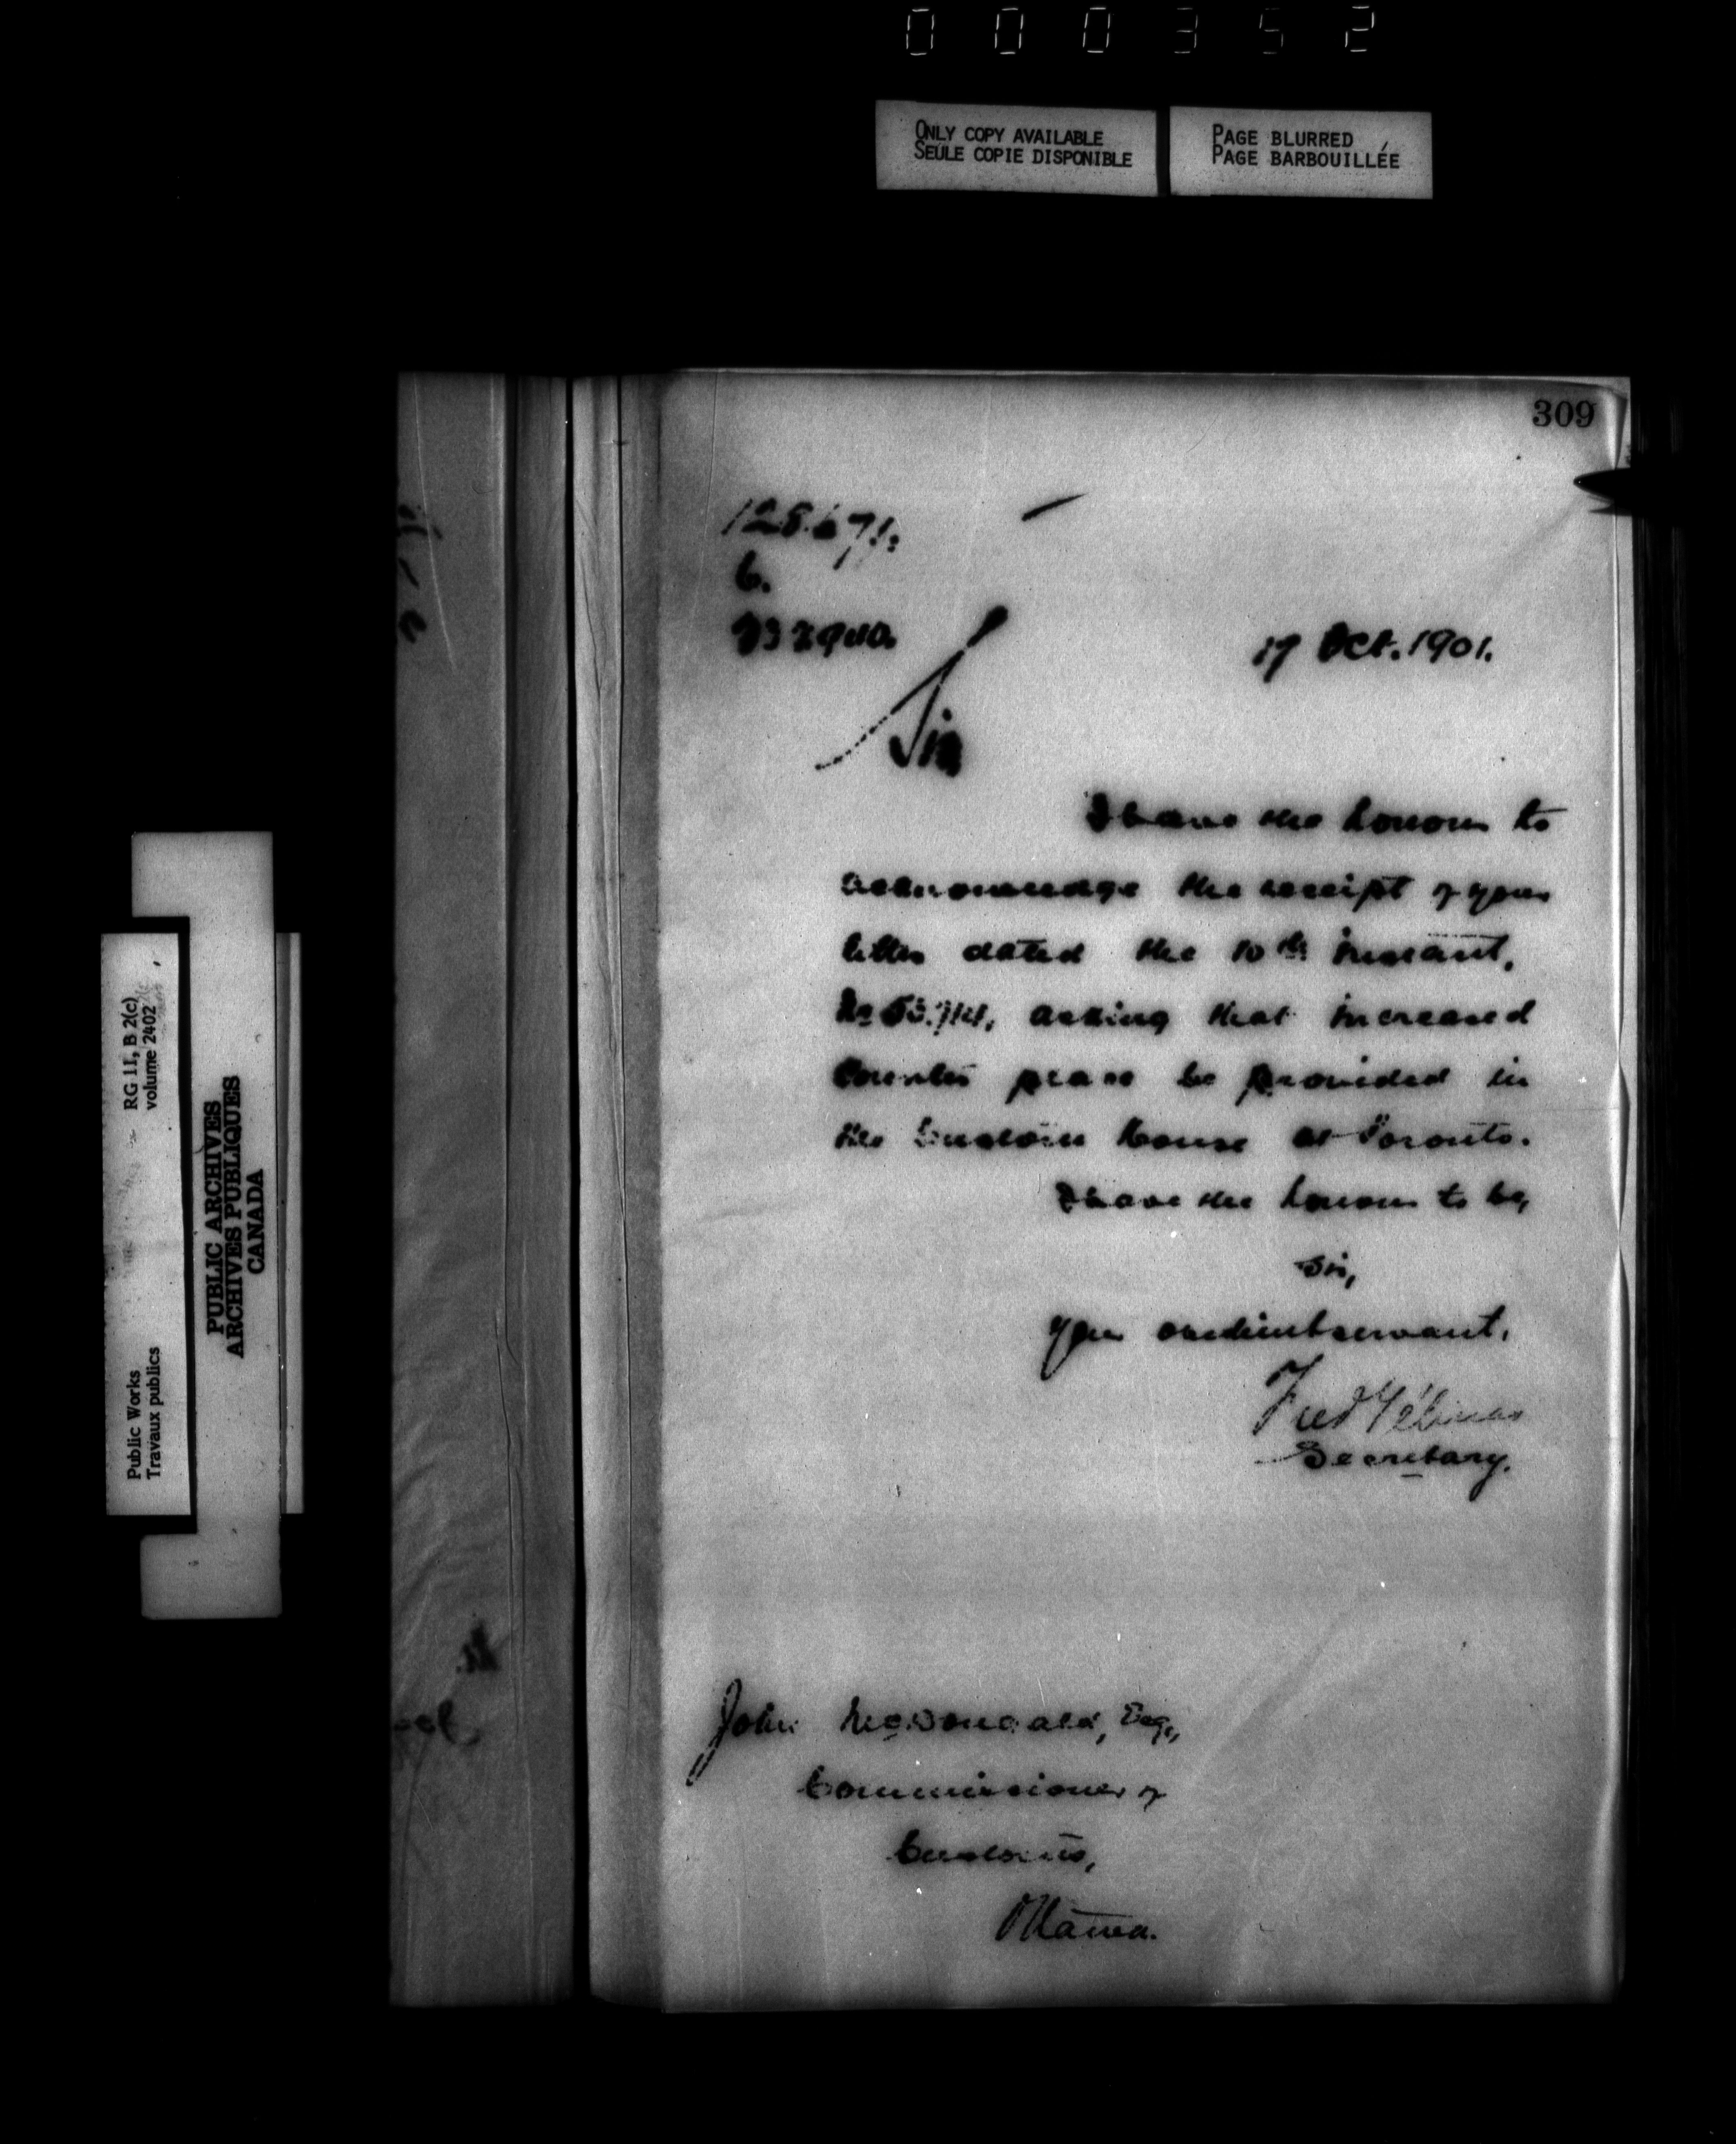 000352
ONLY COPY AVAILABLE
SEULE COPIE DISPONIBLE
PAGE BLURRED
PAGE BARBOUILLÉE
309
128671.
6.
17 Oct. 1901.
Sir
I have the honour to
acknowledge the receipt of your
letter dated the 10th instant,
No asking that increased
Counter space be provided in
the Custom house at Toronto.
I have the honour to be,
Sir,
Your obedient servant,
Fred Gélinas
Secretary.
John McDougald, Esq.,
Commissioner of
Customs,
Ottawa.
Public Works
Travaux publics
RG 11, B 2(c)
volume 2402
PUBLIC ARCHIVES
ARCHIVES PUBLIQUES
CANADA